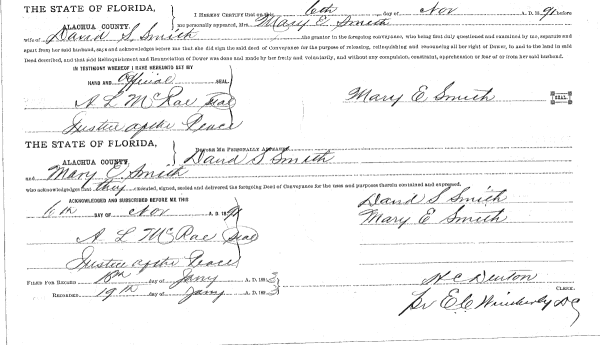 THE STATE OF FLORIDA,
ALACHUA COUNTY.
I HEREBY CERTIFY that on this 6th day of Nov A. D. 189 before
me personally appeared, Mrs. Mary E. Smith
wife of David S Smith the grantor in the foregoing conveyance, who being first duly questioned and examined by me, separate and
apart from her said husband, says and acknowledges before me that she did sign the said deed of Conveyance for the purpose of releasing, relinquishing and renouncing all her right of Dower, in and to the land in said
Deed described, and that said Relinquishment and Renunciation of Dower was done and made by her freely and Voluntarily, and without any compulsion, constraint, apprehension or fear of or from her said husband.
IN TESTIMONY WHEREOF I HAVE HEREUNTO SET MY
HAND AND Official SEAL.
A L McRae Seal
Mary E Smith SEAL
Justice of the Peace
THE STATE OF FLORIDA,
ALACHUA COUNTY.
BEFORE ME PERSONALLY APPEARED David S Smith
and Mary E. Smith
who acknowledges that they executed, signed, sealed and delivered the foregoing Deed of Conveyance for the uses and purposes therein contained and expressed.
ACKNOWLEDGED AND SUBSCRIBED BEFORE ME THIS
David S Smith
6th DAY OF Nov A. D. 189
Mary E Smith
A L McRae Seal
Justice of the Peace
FILED FOR RECORD 18th day of Jany A. D. 1893
H C Denton
CLERK.
RECORDED 19th day of Jany A. D. 1893
pr E. C. Wimberly D C